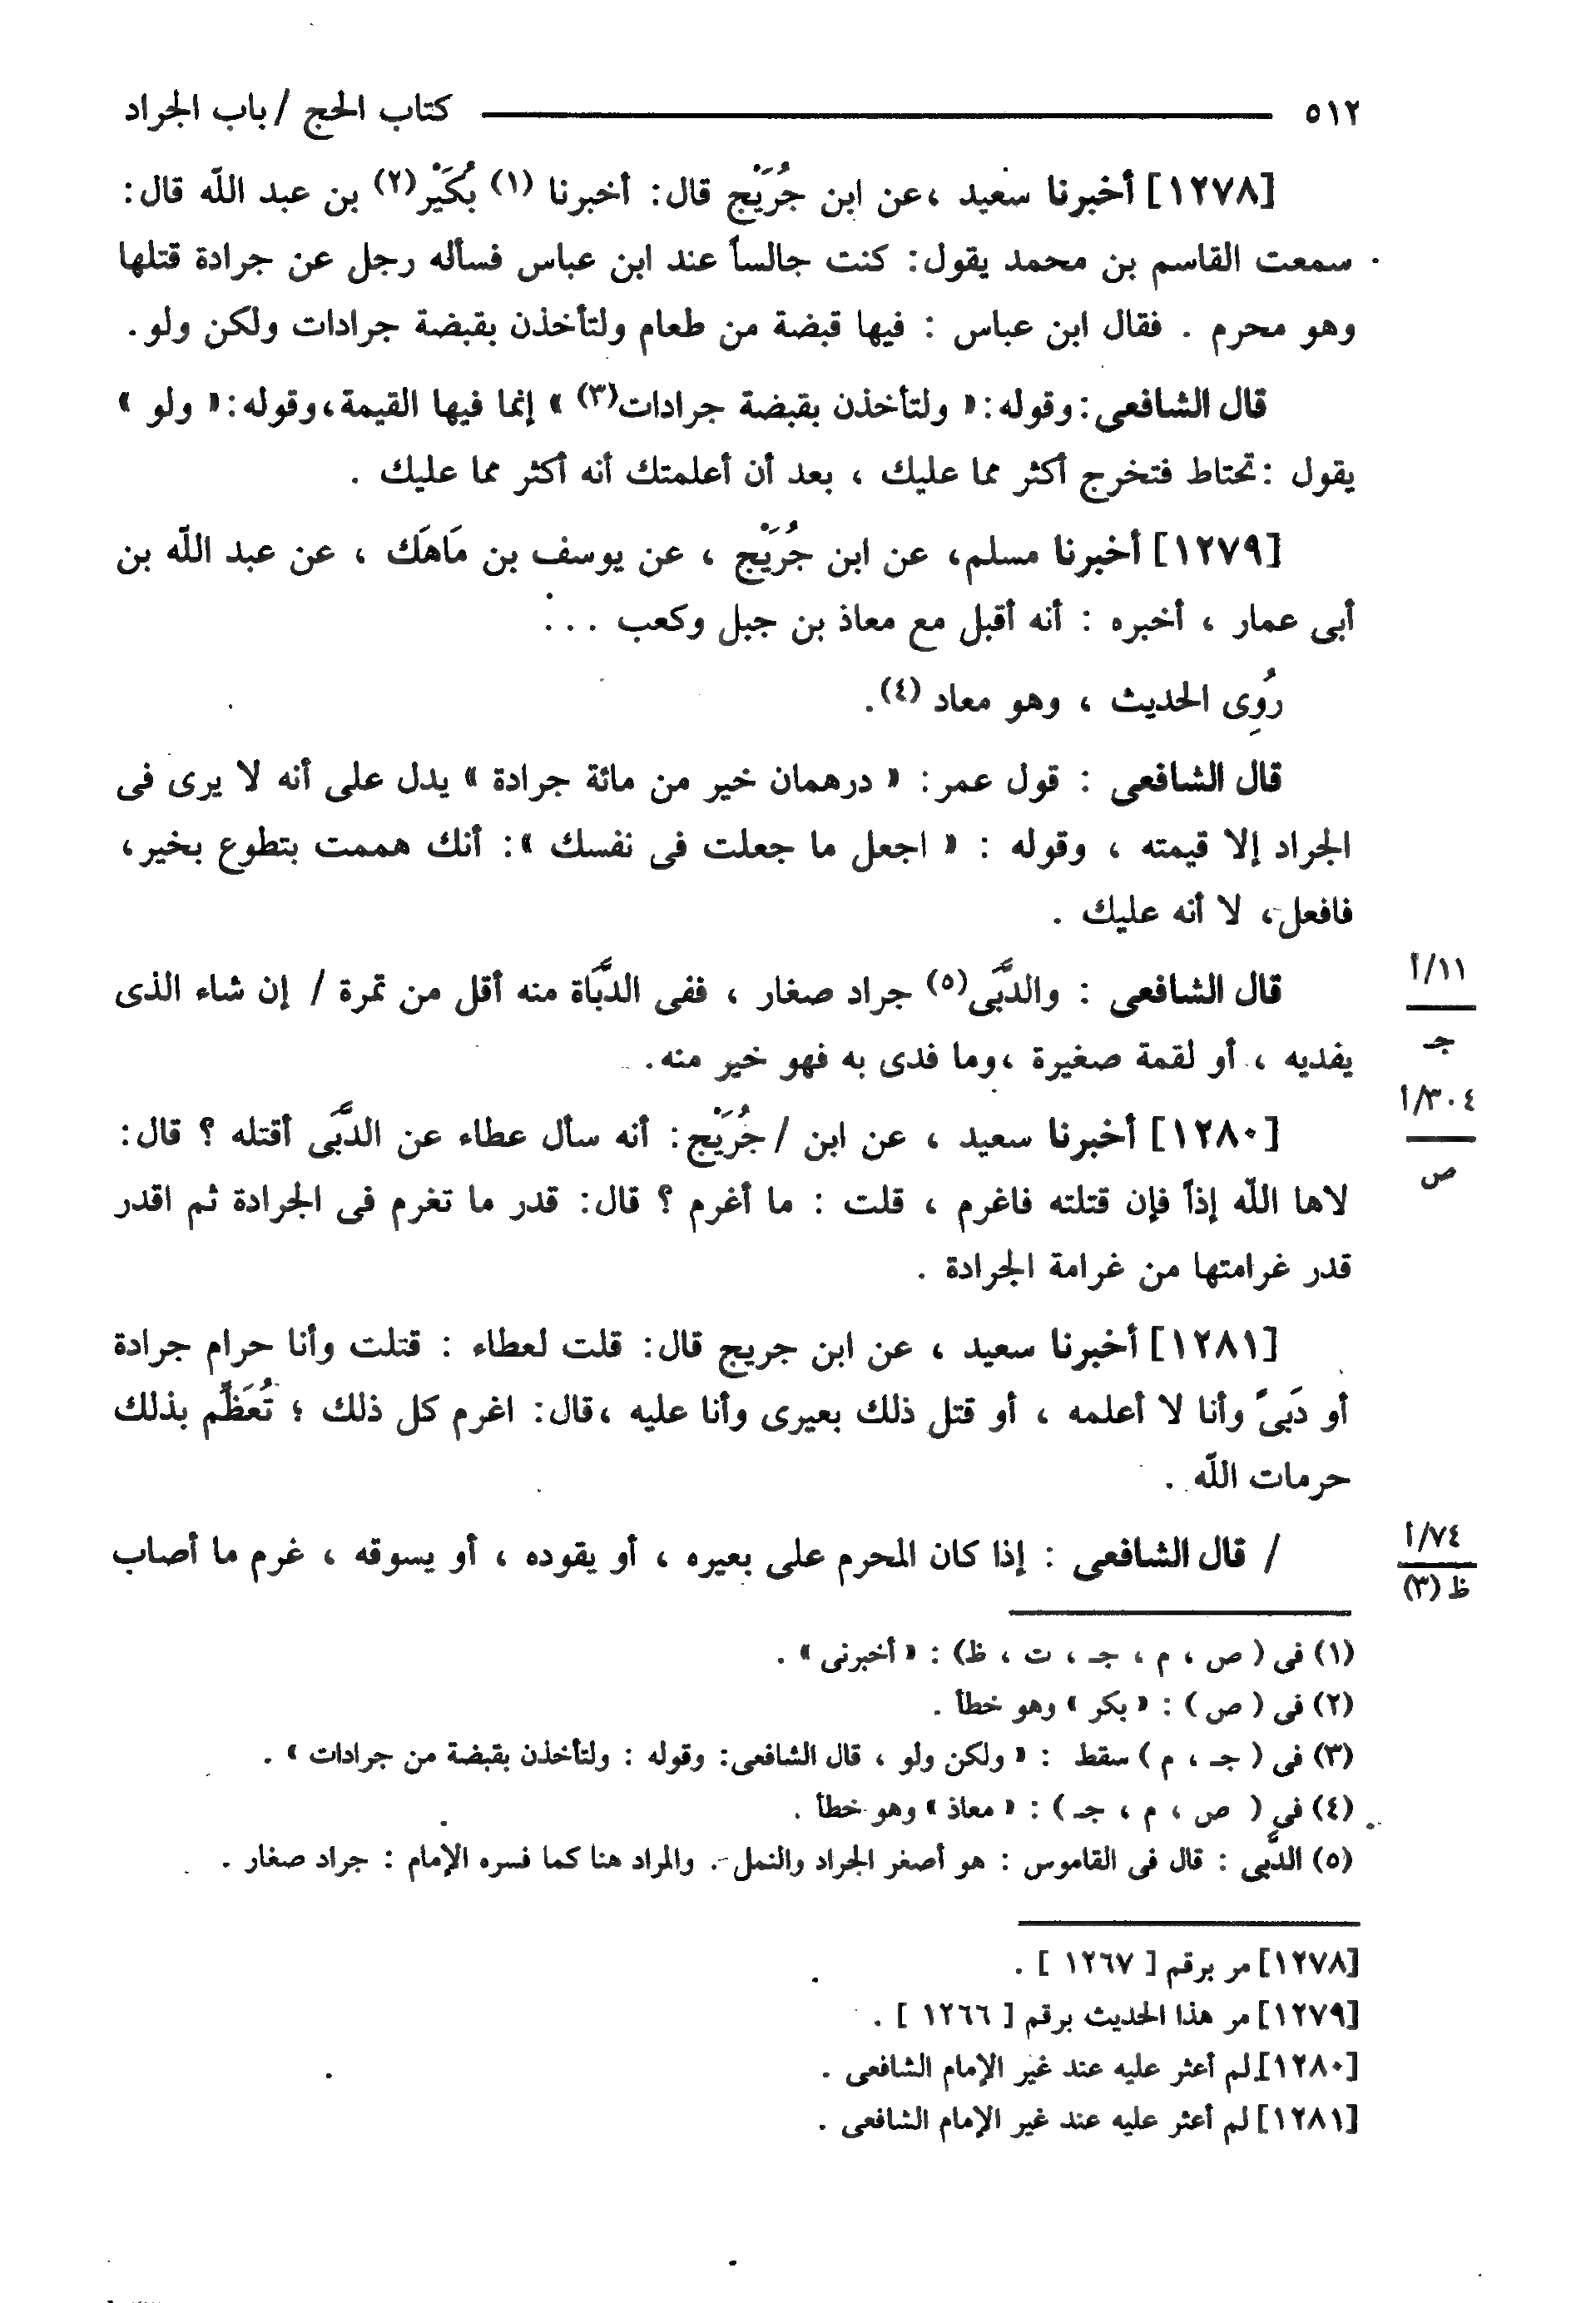 ٥١٢ كتاب الحج / باب الجراد
[١٢٧٨] أخبرنا سعيد ، عن ابن جُرَيْج قال : أخبرنا (١) بُكَيْر(٢) بن عبد الله قال :
سمعت القاسم بن محمد يقول : كنت جالساً عند ابن عباس فسأله رجل عن جرادة قتلها
وهو محرم . فقال ابن عباس : فيها قبضة من طعام ولتأخذن بقبضة جرادات ولكن ولو .
قال الشافعى : وقوله : « ولتأخذن بقبضة جرادات(٣) » إنما فيها القيمة ، وقوله : « ولو »
يقول : تحتاط فتخرج أكثر مما عليك ، بعد أن أعلمتك أنه أكثر مما عليك .
[١٢٧٩] أخبرنا مسلم ، عن ابن جُرَيْج ، عن يوسف بن مَاهَك ، عن عبد الله بن
أبى عمار ، أخبره : أنه أقبل مع معاذ بن جبل وكعب . . .
رُوِى الحديث ، وهو معاد (٤) .
قال الشافعى : قول عمر : « درهمان خير من مائة جرادة » يدل على أنه لا يرى فى
الجراد إلا قيمته ، وقوله : « اجعل ما جعلت فى نفسك » : أنك هممت بتطوع بخير ،
فافعل ، لا أنه عليك .
قال الشافعى : والدَّبَى(٥) جراد صغار ، ففى الدَّبَاة منه أقل من تمرة / إن شاء الذى
١١/أ
جـ
يفديه ، أو لقمة صغيرة ، وما فدى به فهو خير منه .
٣٠٤/أ
ص
[١٢٨٠] أخبرنا سعيد ، عن ابن / جُرَيْج : أنه سأل عطاء عن الدَّبَى أقتله ؟ قال :
لاها الله إذاً فإن قتلته فاغرم ، قلت : ما أغرم ؟ قال : قدر ما تغرم فى الجرادة ثم اقدر
قدر غرامتها من غرامة الجرادة .
[١٢٨١] أخبرنا سعيد ، عن ابن جريج قال : قلت لعطاء : قتلت وأنا حرام جرادة
أو دَبىً وأنا لا أعلمه ، أو قتل ذلك بعيرى وأنا عليه ، قال : اغرم كل ذلك ؛ تُعَظِّم بذلك
حرمات الله .
٧٤/أ
ظ (٣)
/ قال الشافعى : إذا كان المحرم على بعيره ، أو يقوده ، أو يسوقه ، غرم ما أصاب
(١) فى ( ص ، م ، جـ ، ت ، ظ) : « أخبرنى » .
(٢) فى ( ص ) : « بكر » وهو خطأ .
(٣) فى ( جـ ، م ) سقط : « ولكن ولو ، قال الشافعى : وقوله : ولتأخذن بقبضة من جرادات » .
(٤) فى ( ص ، م ، جـ ) : « معاذ » وهو خطأ .
(٥) الدَّبَى : قال فى القاموس : هو أصغر الجراد والنمل . والمراد هنا كما فسره الإمام : جراد صغار .
[١٢٧٨] مر برقم [ ١٢٦٧ ] .
[١٢٧٩] مر هذا الحديث برقم [ ١٢٦٦ ] .
[١٢٨٠] لم أعثر عليه عند غير الإمام الشافعى .
[١٢٨١] لم أعثر عليه عند غير الإمام الشافعى .